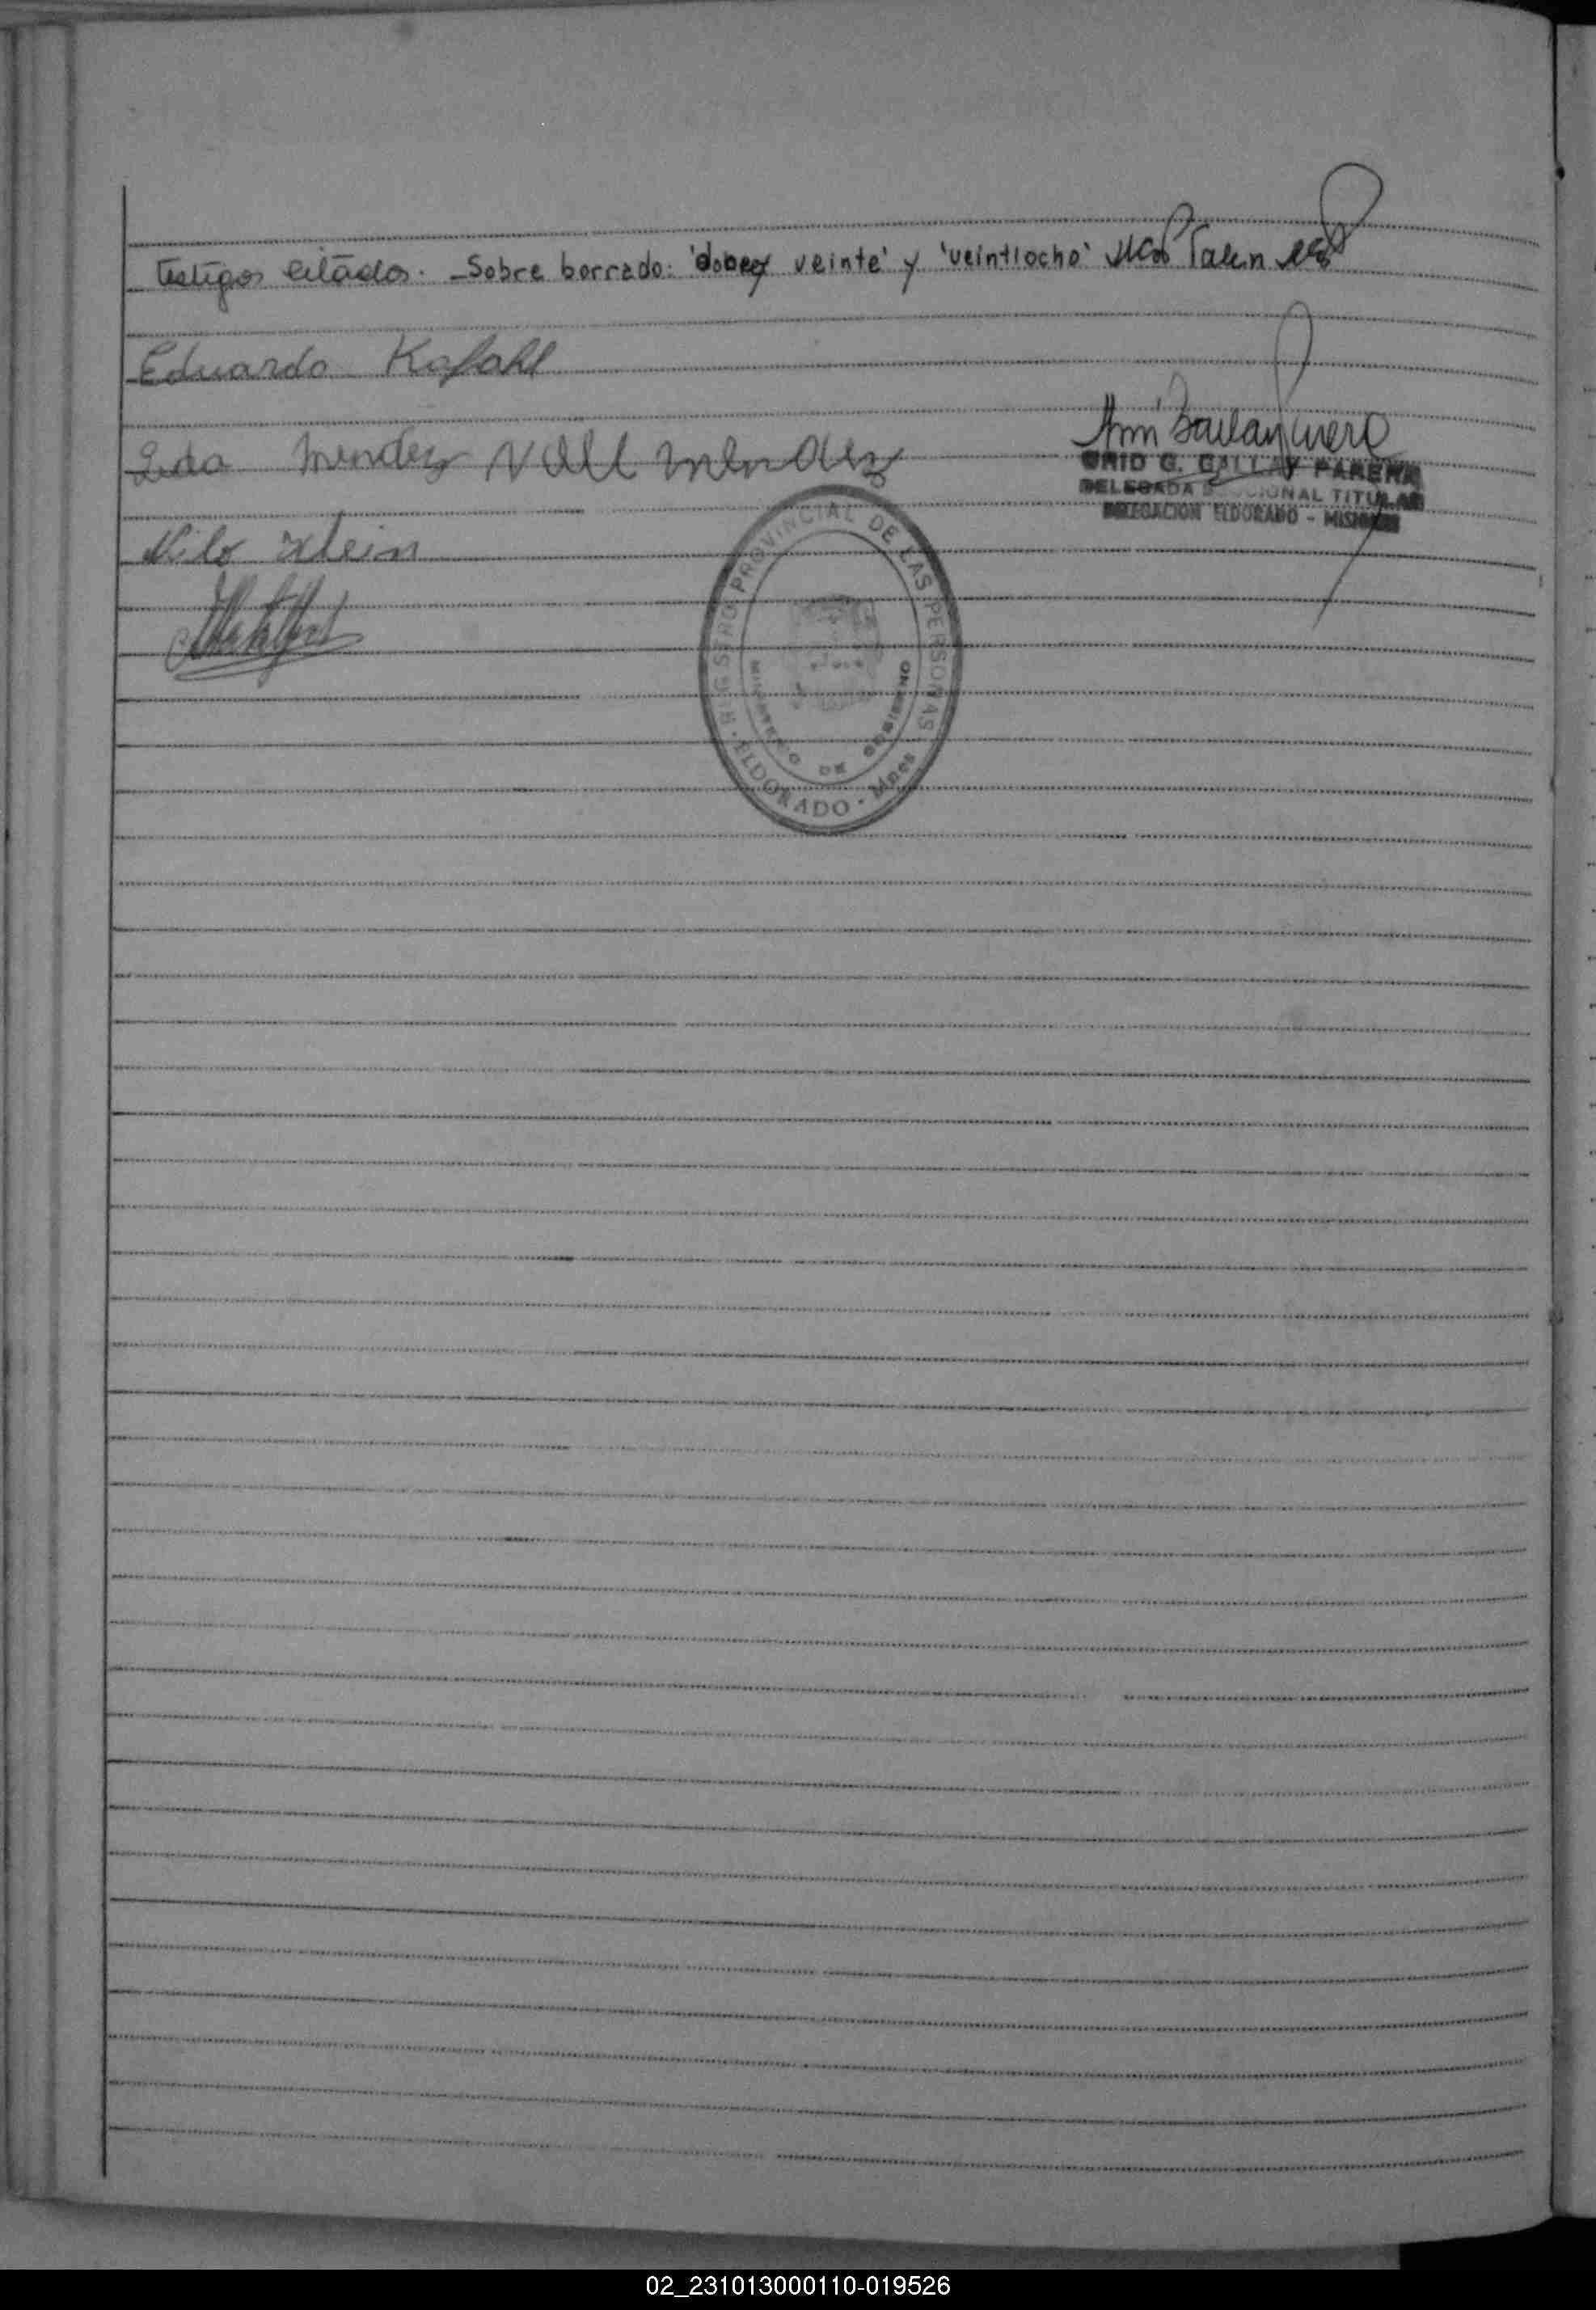 testigos citados. - Sobre borrado: 'dobey veinte' y 'veintiocho' Valen
Eduardo Kafahl
Lida Mendez Nill Mendez
G. GALLAY PARERA
DELEGADA SECCIONAL TITULAR
DELEGACION ELDORADO - MISIONES
Nilo Klein
REGISTRO PROVINCIAL DE LAS PERSONAS
MINISTERIO DE GOBIERNO
· ELDORADO · Mnes
02_231013000110-019526